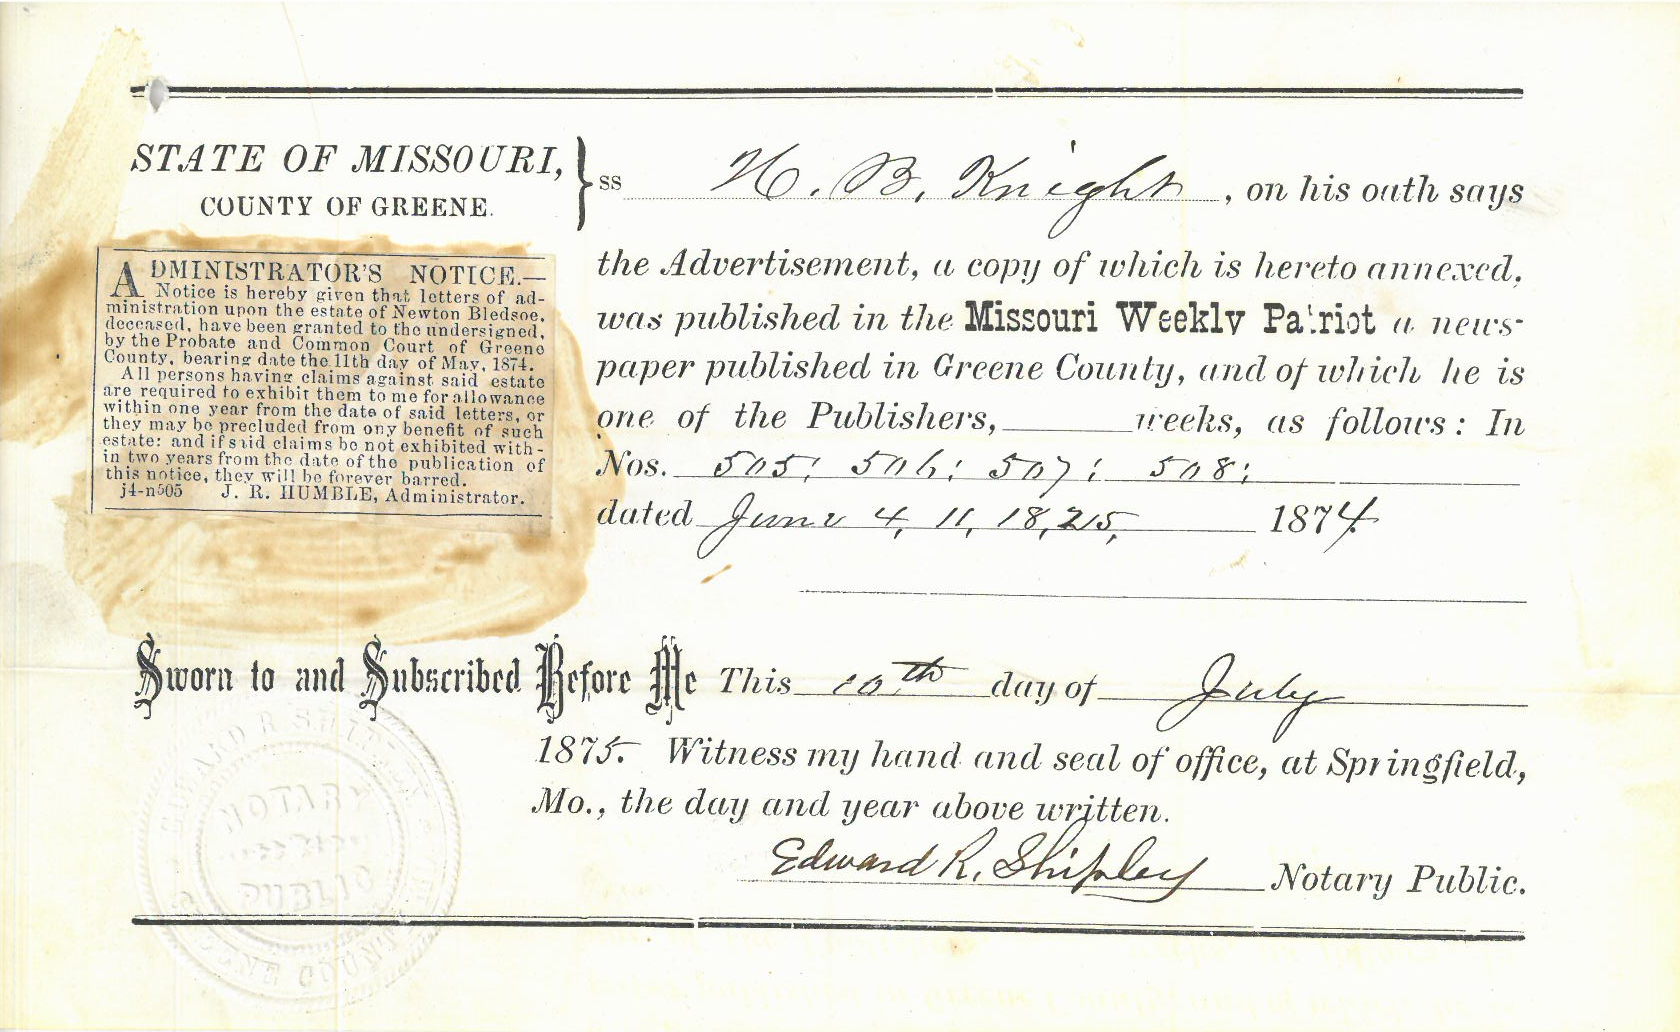 STATE OF MISSOURI,
COUNTY OF GREENE.
ss H. B. Knight, on his oath says
the Advertisement, a copy of which is hereto annexed,
was published in the Missouri Weekly Patriot a news-
paper published in Greene County, and of which he is
one of the Publishers, weeks, as follows: In
Nos. 505; 506; 507; 508;
dated June 4, 11, 18, 25, 1874
ADMINISTRATOR'S NOTICE.—
Notice is hereby given that letters of ad-
ministration upon the estate of Newton Bledsoe,
deceased, have been granted to the undersigned,
by the Probate and Common Court of Greene
County, bearing date the 11th day of May, 1874.
All persons having claims against said estate
are required to exhibit them to me for allowance
within one year from the date of said letters, or
they may be precluded from ony benefit of such
estate: and if said claims be not exhibited with-
in two years from the date of the publication of
this notice, they will be forever barred.
j4-n505 J. R. HUMBLE, Administrator.
Sworn to and Subscribed Before Me This 10th day of July
1875. Witness my hand and seal of office, at Springfield,
Mo., the day and year above written.
Edward R. Shipley Notary Public.
NOTARY
PUBLIC